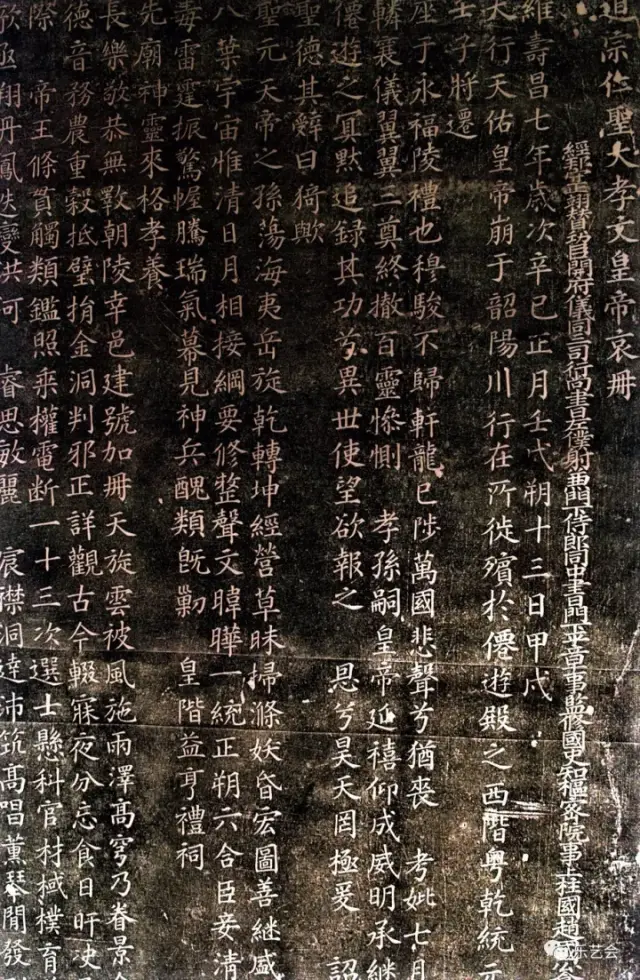 道宗仁聖大孝文皇帝哀冊
經邦守翊賛功臣開府儀同三司行尚書左僕射兼門下侍郎同中書門下平章事監修國史知樞密院事上柱國趙國
維壽昌七年歲次辛巳正月壬戌朔十三日甲戌
大行天佑皇帝崩于韶陽川行在所徙殯於僊遊殿之西階粵乾統元
壬子將遷
座于永福陵禮也穆駿不歸軒龍已陟萬國悲聲兮猶喪 考妣七月
轔襄儀翼翼三奠終撤百靈慘惻 孝孫嗣皇帝延禧仰成威明承継
僊遊之冥默追録其功兮異世使望欲報之 恩兮昊天罔極爰 詔
聖德其辭曰猗歟
聖元天帝之孫蕩海夷岳旋乾轉坤經營草昧掃滌妖昏宏圖善継盛
八葉宇宙惟清日月相接綱要修整聲文暐曄一統正朔六合臣妾清
毒雷霆振驚幄騰瑞氣幕見神兵醜類既勦 皇階益亨禮祠
先廟神靈來格孝養
長樂敬恭無斁朝陵幸邑建號加冊天旋雲被風施雨澤髙穹乃眷景
德音務農重穀抵璧捐金洞判邪正詳觀古今輟寐夜分忘食日旰
際 帝王條貫觸類鑑照乘權電断一十三次選士懸科官材棫樸育
歌亟翔丹鳳迭變洪河 睿思敏麗 宸襟洞達沛筑髙唱薰琴閒發
乐艺会